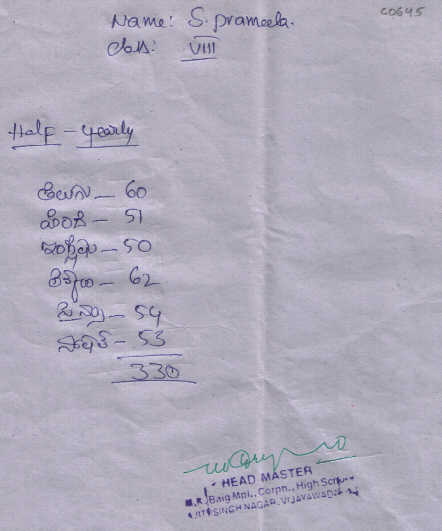 C0645
Name: S. prameela.
Class: VIII
Half - yearly
తెలుగు - 60
హిందీ - 51
ఇంగ్లీషు - 50
62
54
53
330
HEAD MASTER
Baig Mpl., Corpn., High
SINGH NAGAR, VIJAYAWADA